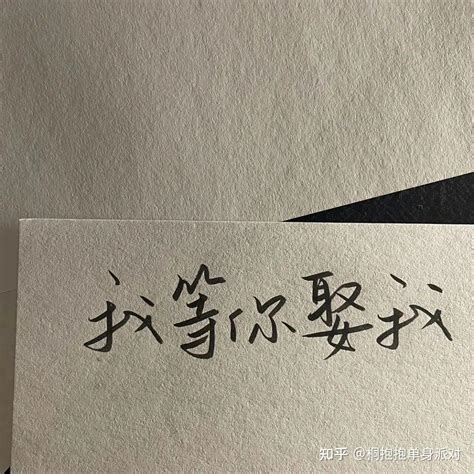 我等你娶我
知乎 @桐抱抱单身派对